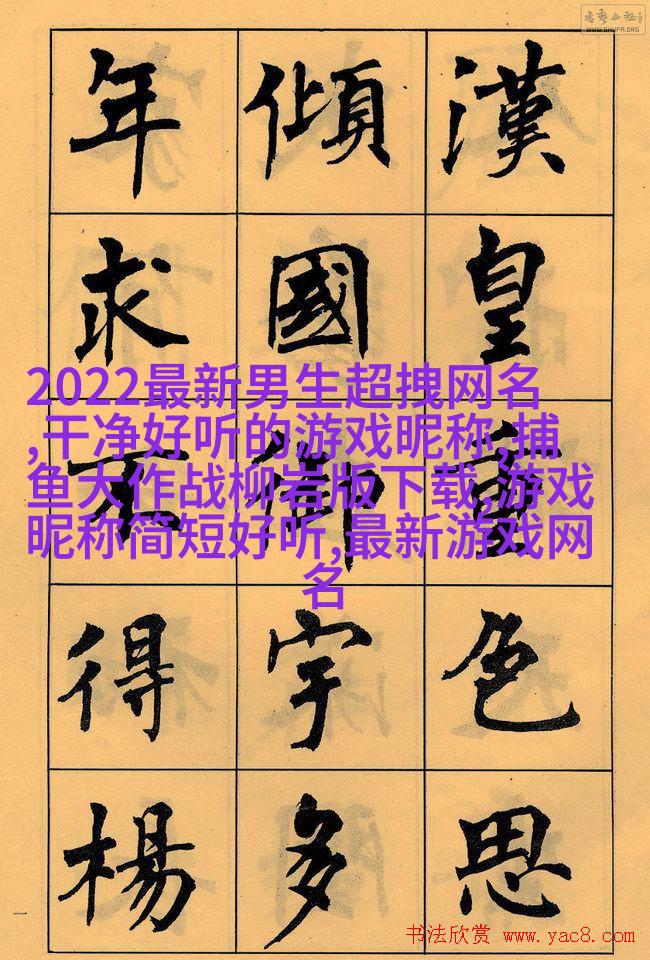 漢皇重色思
傾國御宇多
年求不得楊
2022最新男生超拽网名
,干净好听的游戏昵称,捕
鱼大作战柳岩版下载,游戏
昵称简短好听,最新游戏网
名
一
WWW.SHUFA.ORG
书法欣赏 www.yac8.com